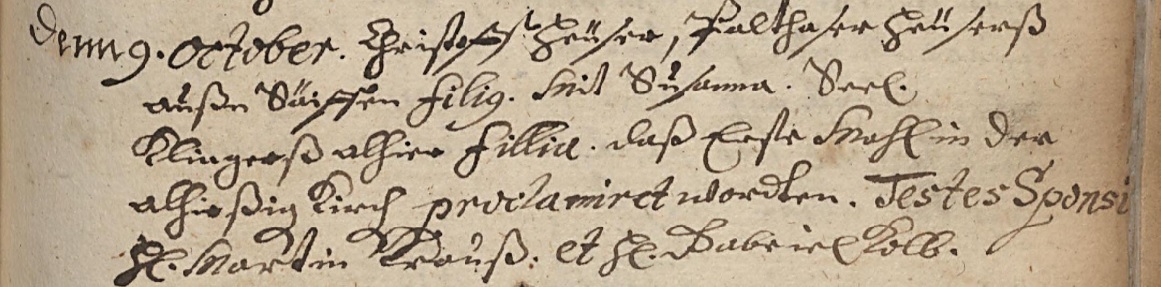 Denn 9. October. Christoff Heüser, Balthaser Heüserß
außn Säiffen filig. Mit Susanna. Seel.
Klingerß alhier fillia. daß Erste Mahl in der
alhießig Kirch proclamiret wordten. Testes Sponsi
H. Martin Krauß: et H. Gabriel Kolb.